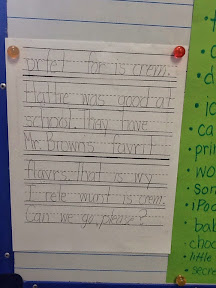 prfet for is crem.
Hattie was good at
school. Thay have
Mr. Brown's favrit
flavrs. That is wy
I rele wunt is crem.
Can we go, please?
ca
pri
wo
son
iPo
bab
choc
little
secre